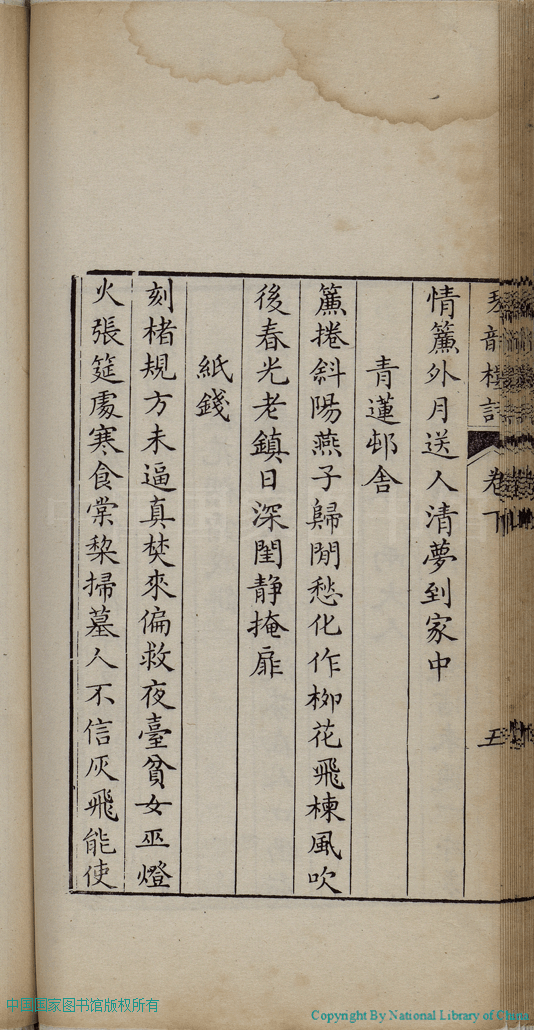 卷下
五
情簾外月送人清夢到家中
青蓮邨舍
簾捲斜陽燕子歸閒愁化作栁花飛楝風吹
後春光老鎮日深閨静掩扉
紙錢
刻楮規方未逼真焚來偏救夜臺貧女巫燈
火張筵處寒食棠棃掃墓人不信灰飛能使
中国国家图书馆版权所有
Copyright By National Library of China